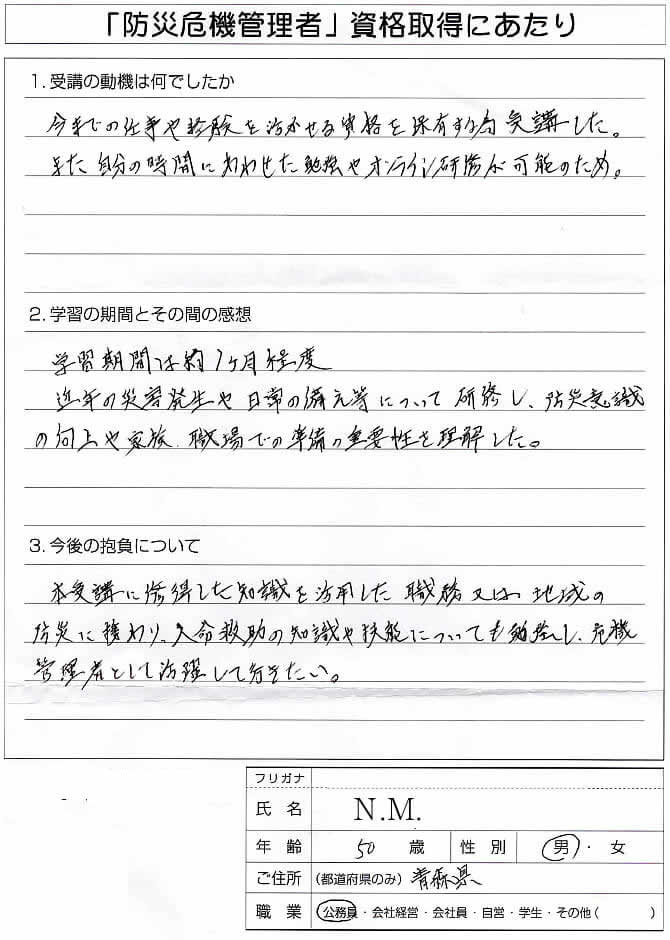 「防災危機管理者」資格取得にあたり
1.受講の動機は何でしたか
今までの仕事や経験を活かせる資格を保有する為受講した。
また自分の時間にあわせた勉強やオンライン研修が可能のため。
2.学習の期間とその間の感想
学習期間は約1ヶ月程度
近年の災害発生や日常の備え等について研修し、防災意識
の向上や家族、職場での準備の重要性を理解した。
3.今後の抱負について
本受講に修得した知識を活用した職務又は地域の
防災に携わり、人命救助の知識や技能についても勉強し、危機
管理者として活躍して行きたい。
フリガナ
氏名 N.M.
年齢 50 歳 性別 男・女
ご住所 (都道府県のみ) 青森県
職業 公務員・会社経営・会社員・自営・学生・その他( )